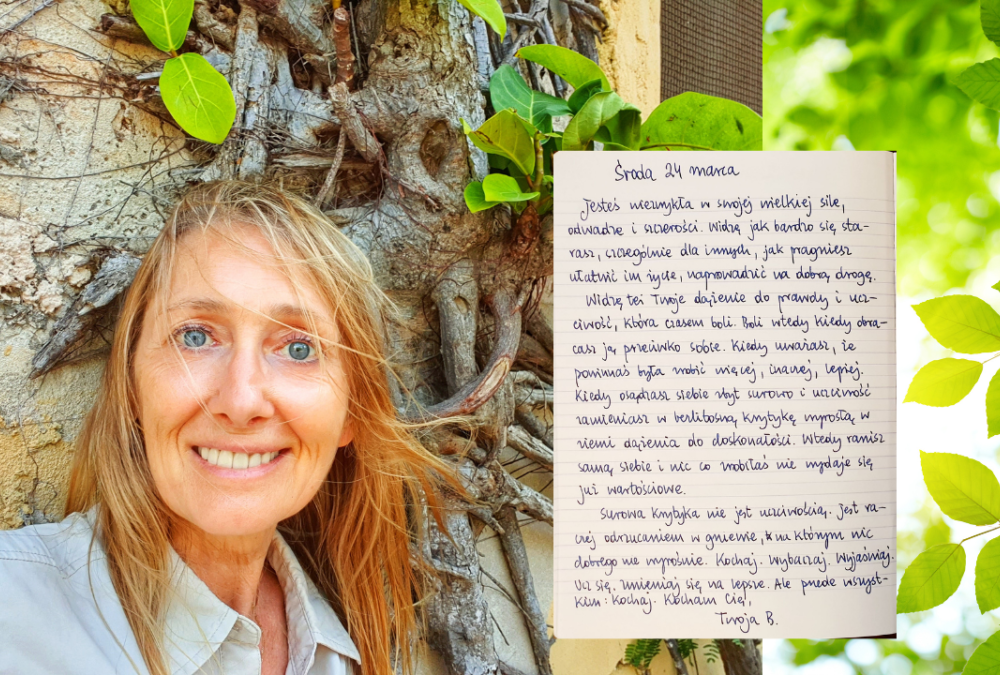 Środa 24 marca
Jesteś niezwykła w swojej wielkiej sile,
odwadze i szczerości. Widzę jak bardzo się sta-
rasz, szczególnie dla innych, jak pragniesz
ułatwić im życie, naprowadzić na dobrą drogę.
Widzę też Twoje dążenie do prawdy i ucz-
ciwość, która czasem boli. Boli wtedy kiedy obra-
casz ją przeciwko sobie. Kiedy uważasz, że
powinnaś była zrobić więcej, inaczej, lepiej.
Kiedy osądzasz siebie zbyt surowo i uczciwość
zamieniasz w bezlitosną krytykę wyrosłą w
ziemi dążenia do doskonałości. Wtedy ranisz
samą siebie i nic co zrobiłaś nie wydaje się
już wartościowe.
Surowa krytyka nie jest uczciwością. Jest ra-
czej odrzucaniem w gniewie, na którym nic
dobrego nie wyrośnie. Kochaj. Wybaczaj. Wyjaśniaj.
Ucz się. Zmieniaj się na lepsze. Ale przede wszyst-
kim: Kochaj. Kocham Cię,
Twoja B.